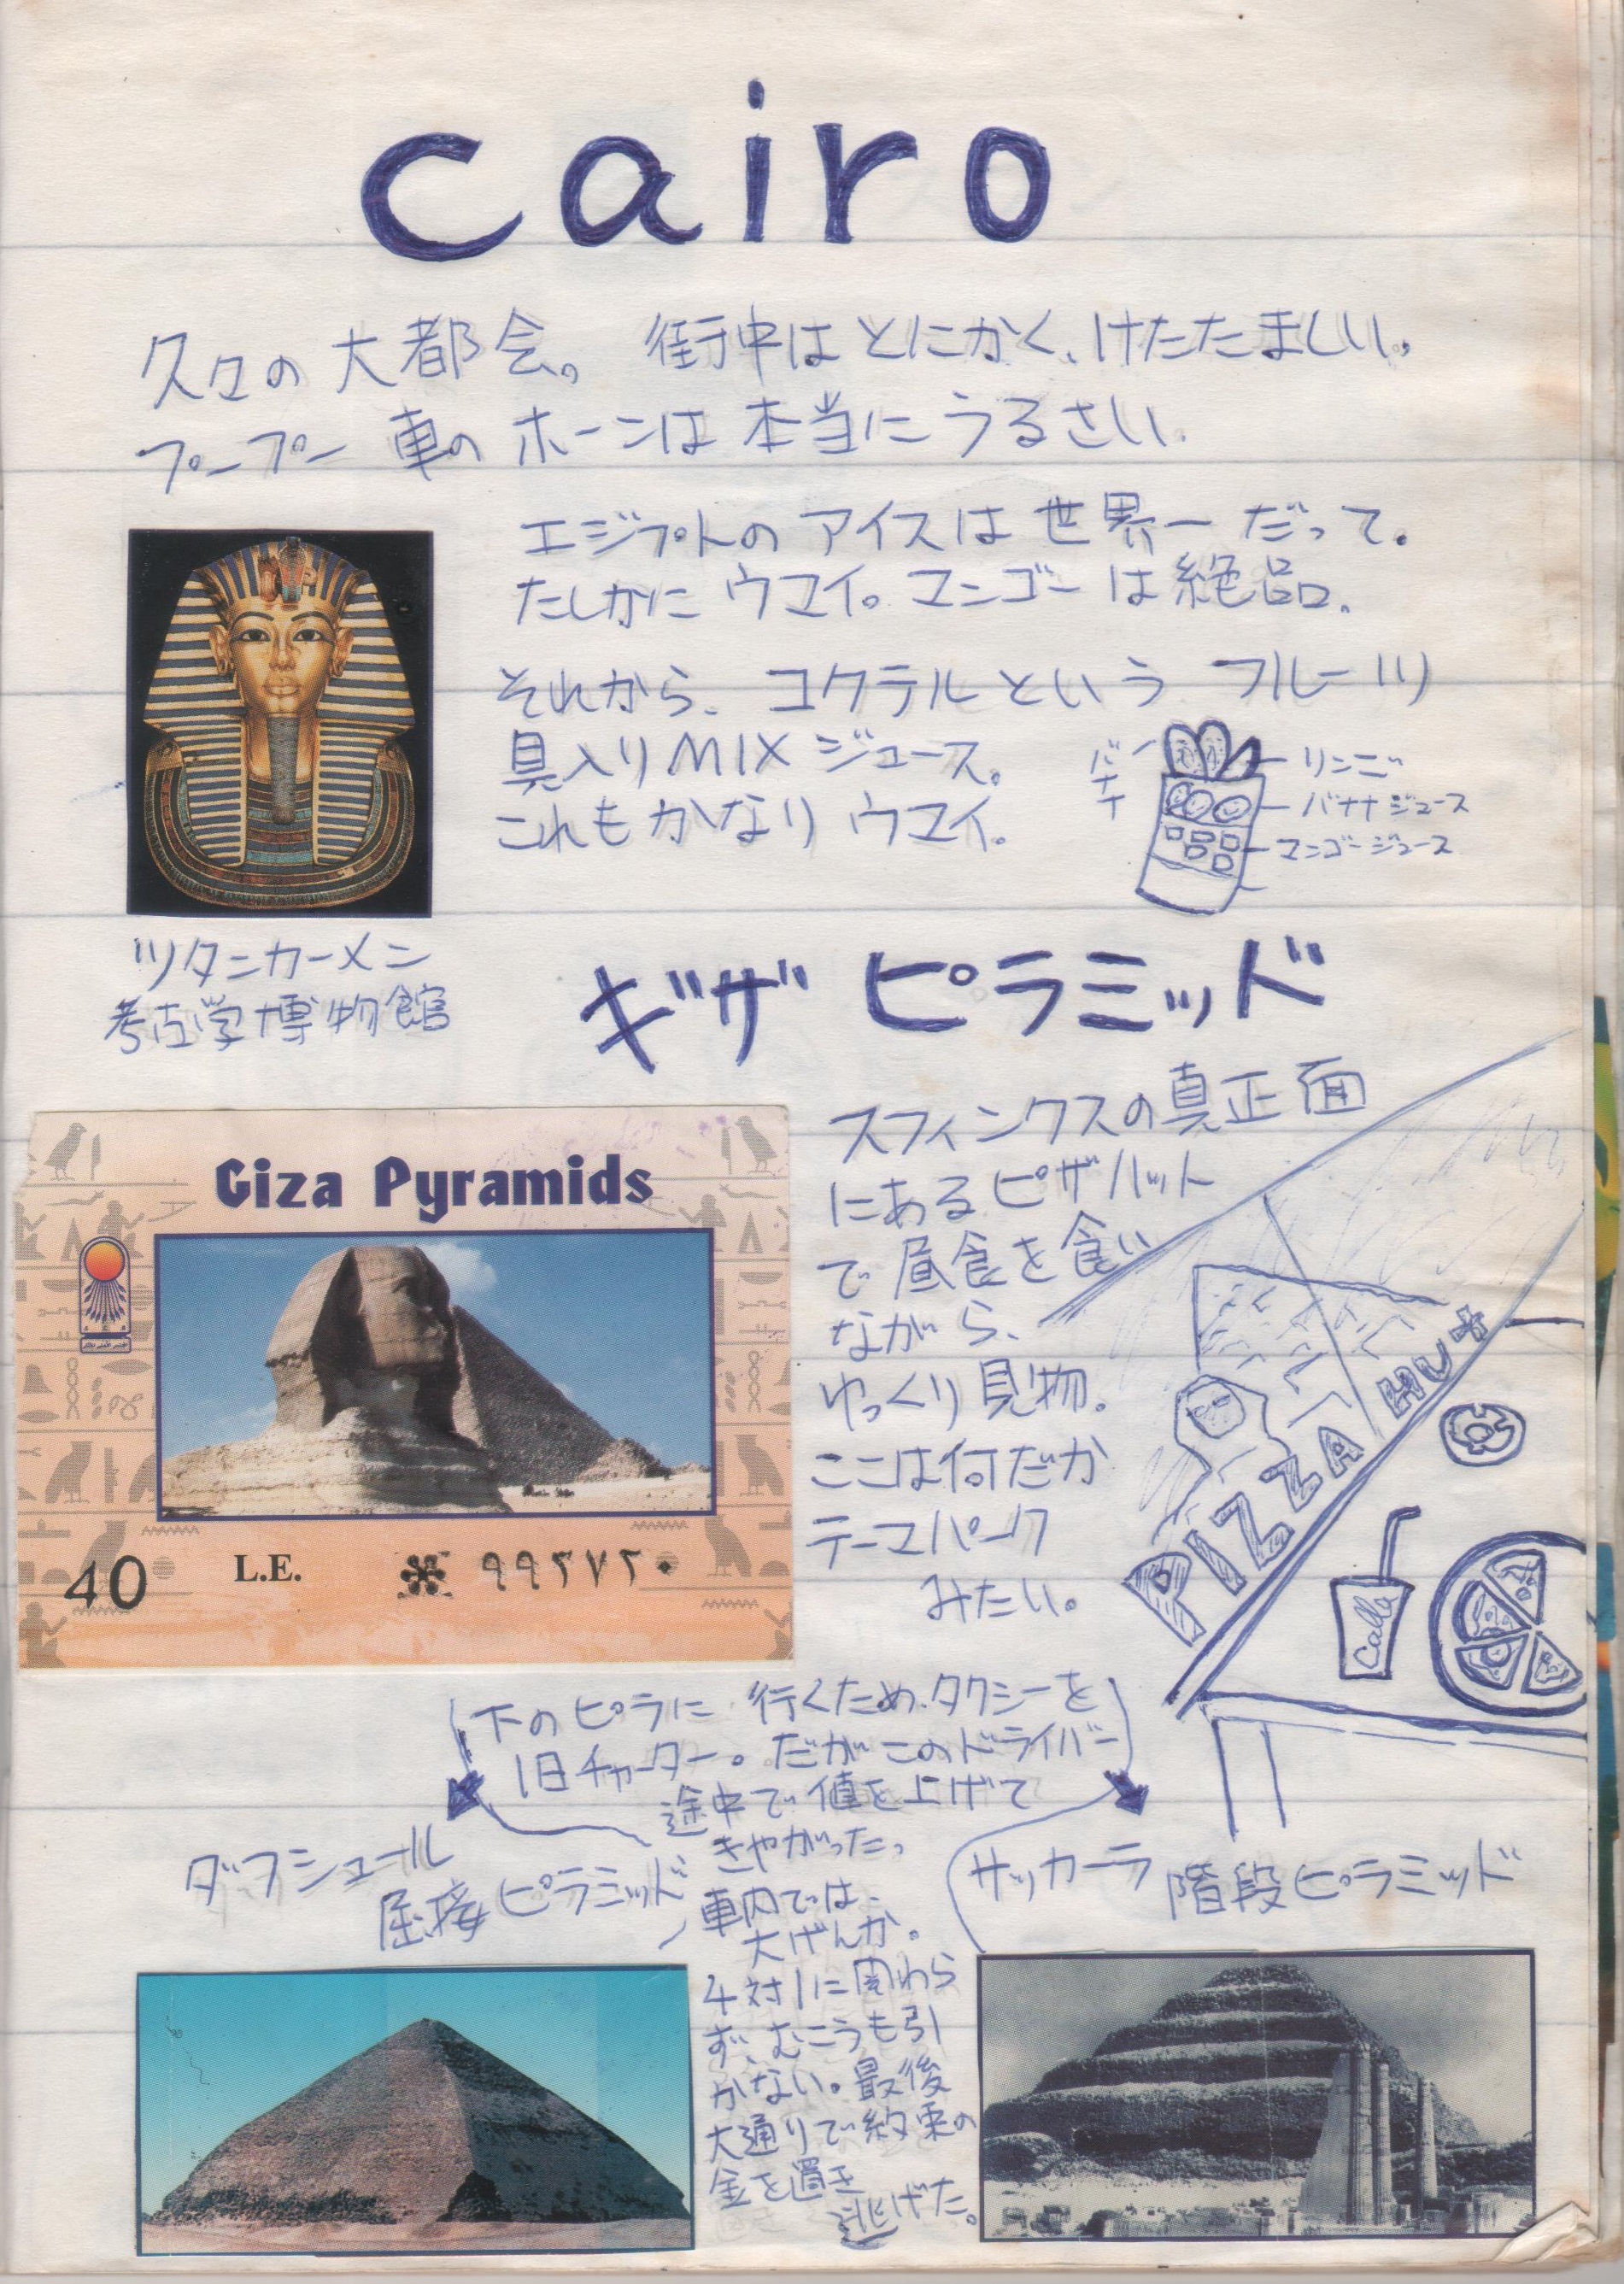 cairo
久々の大都会。 街中はとにかく、けたたましい。
プープー 車の ホーンは 本当に うるさい。
エジプトの アイスは 世界一 だって。
たしかに ウマイ。マンゴーは 絶品。
それから、コクテル という フルーツ
具入り MIX ジュース。
これも かなり ウマイ。
バナナ
リンゴ
バナナジュース
マンゴージュース
ツタンカーメン
考古学博物館
ギザ ピラミッド
スフィンクスの真正面
にある ピザハット
で 昼食を食い
ながら、
ゆっくり 見物。
ここは何だか
テーマパーク
みたい。
PIZZA HUt
Giza Pyramids
40 L.E. ٩٩٢٧٢٠
下のピラに 行くため、タクシーを
1日チャーター。だがこのドライバー
途中で 値を上げて
きやがった。
車内では、
大げんか。
4対1に関わら
ず、むこうも引
かない。最後
大通りで約束の
金を置き
逃げた。
ダフシュール
屈接ピラミッド
サッカーラ 階段ピラミッド